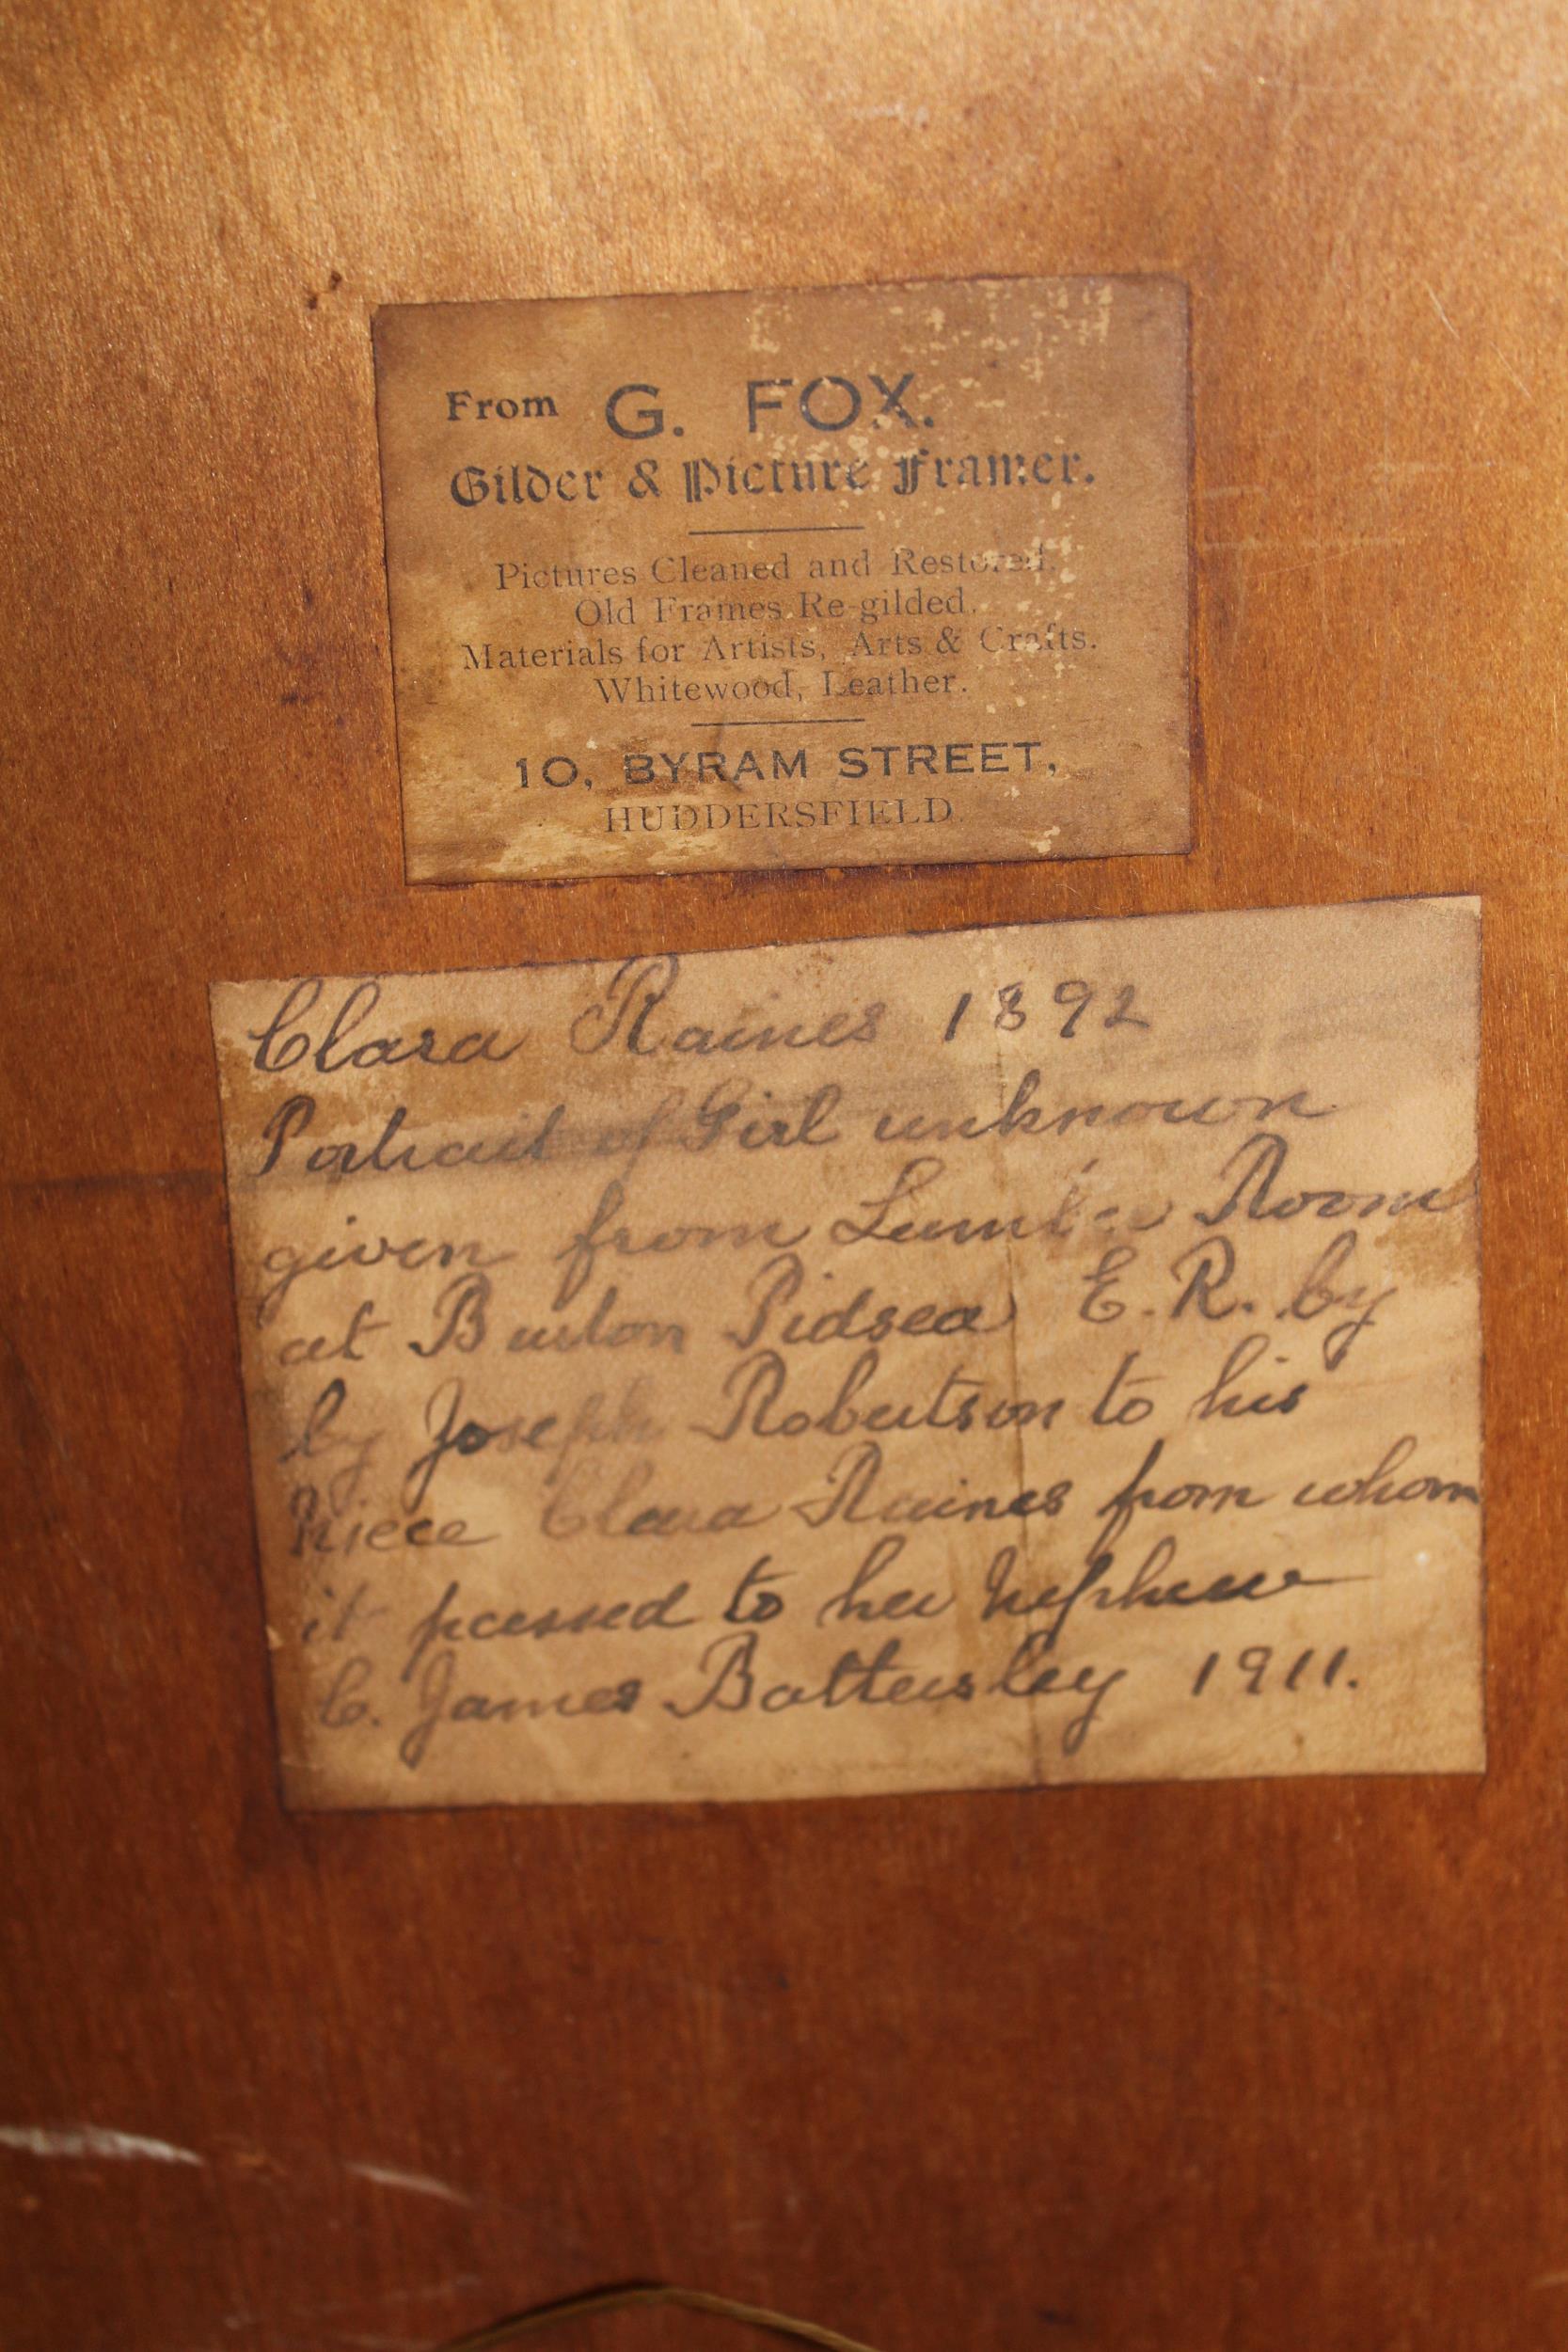 From G. FOX.
Gilder & Picture Framer.
Pictures Cleaned and Restored.
Old Frames Re-gilded.
Materials for Artists, Arts & Crafts.
Whitewood, Leather.
10, BYRAM STREET,
HUDDERSFIELD
Clara Raines 1892
Portrait of Girl unknown
given from Lumber Room
at Burton Pidsea E.R. by
by Joseph Robertson to his
Niece Clara Raines from whom
it passed to her Nephew
C. James Battersley 1911.